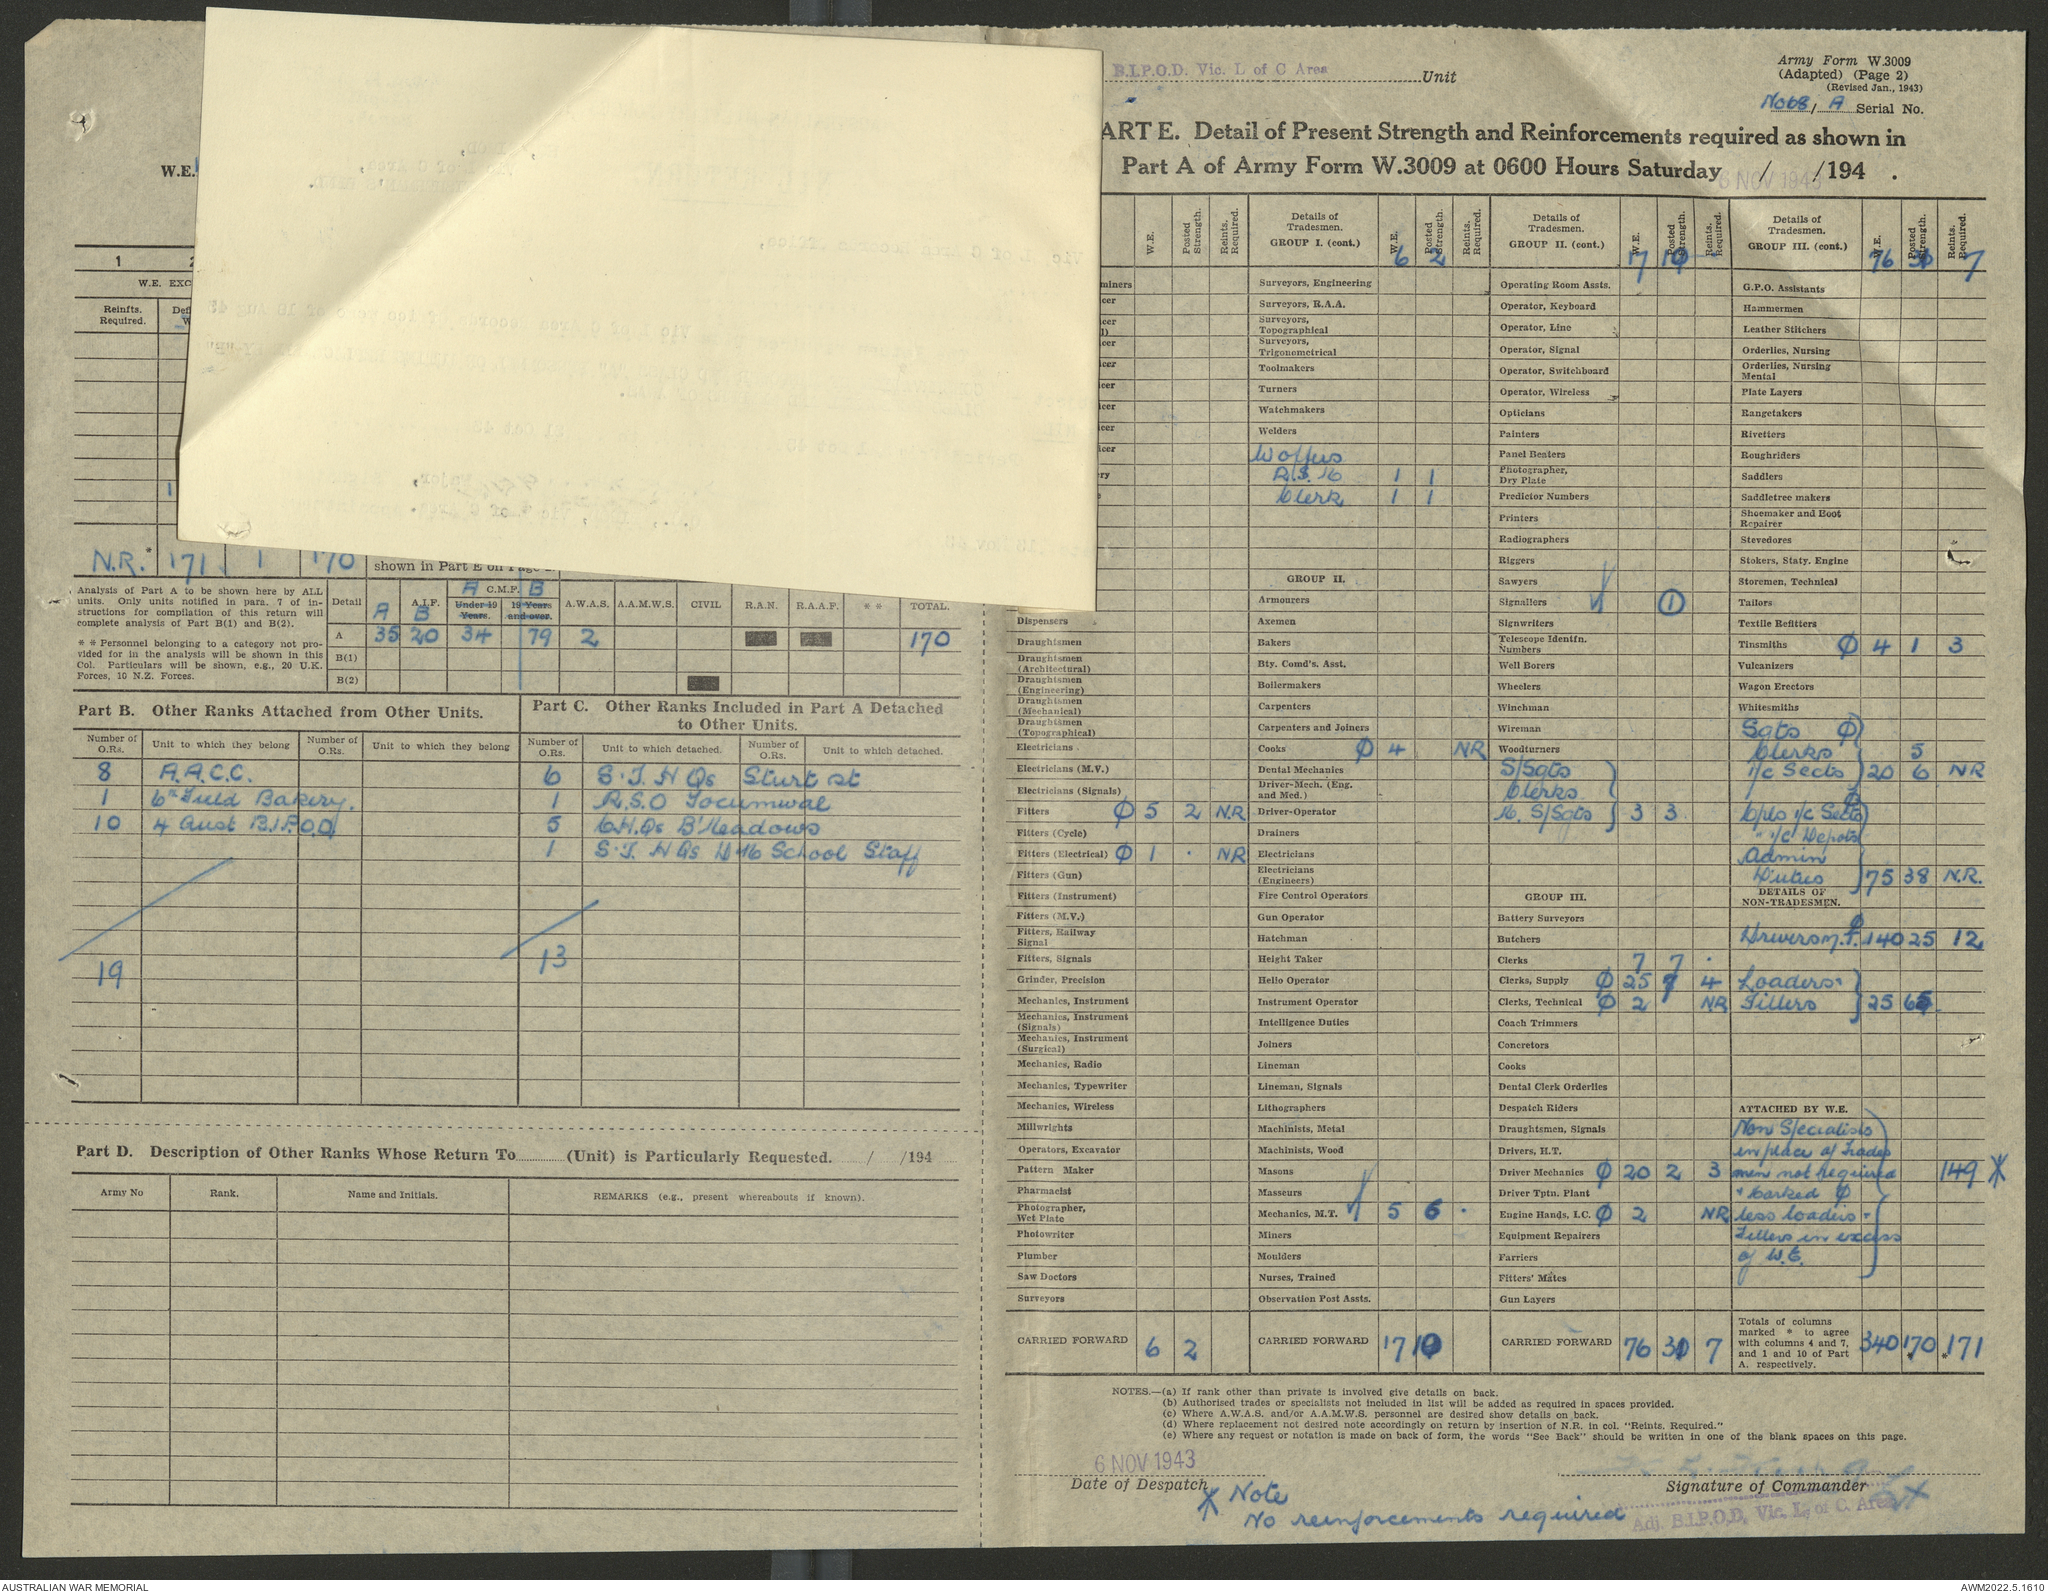 B.I.P.O.D. Vic. L of C Area Unit
Army Form W.3009
(Adapted) (Page 2)
(Revised Jan., 1943)
No 68/A Serial No.
ART E. Detail of Present Strength and Reinforcements required as shown in
Part A of Army Form W.3009 at 0600 Hours Saturday / /194 .
6 NOV 1943
W.E.
1
W.E. EXC
Reinfts. Required.
N.R.* 171 1 170
shown in Part E on Page
Analysis of Part A to be shown here by ALL
units. Only units notified in para. 7 of in-
structions for compilation of this return will
complete analysis of Part B(1) and B(2).
* * Personnel belonging to a category not pro-
vided for in the analysis will be shown in this
Col. Particulars will be shown, e.g., 20 U.K.
Forces, 10 N.Z. Forces.
Detail A.I.F. A B C.M.F. A B Under 19 Years. 19 Years and over. A.W.A.S. A.A.M.W.S. CIVIL R.A.N. R.A.A.F. * * TOTAL.
A 35 20 34 79 2 170
B(1)
B(2)
Part B. Other Ranks Attached from Other Units.
Number of O.Rs. Unit to which they belong Number of O.Rs. Unit to which they belong
8 A.A.C.C.
1 6th Field Bakery.
10 4 Aust B.I.P.O.D
19
Part C. Other Ranks Included in Part A Detached
to Other Units.
Number of O.Rs. Unit to which detached. Number of O.Rs. Unit to which detached.
6 S.T. H Qs Sturt st
1 R.S.O Tocumwal
5 C.H.Qs B'Meadows
1 S.T. H Qs School Staff
13
Part D. Description of Other Ranks Whose Return To (Unit) is Particularly Requested. / /194
Army No Rank. Name and Initials. REMARKS (e.g., present whereabouts if known).
W.E. Posted Strength. Reints. Required.
Dispensers
Draughtsmen
Draughtsmen (Architectural)
Draughtsmen (Engineering)
Draughtsmen (Mechanical)
Draughtsmen (Topographical)
Electricians
Electricians (M.V.)
Electricians (Signals)
Fitters Ø 5 2 N.R.
Fitters (Cycle)
Fitters (Electrical) Ø 1 . NR
Fitters (Gun)
Fitters (Instrument)
Fitters (M.V.)
Fitters, Railway Signal
Fitters, Signals
Grinder, Precision
Mechanics, Instrument
Mechanics, Instrument (Signals)
Mechanics, Instrument (Surgical)
Mechanics, Radio
Mechanics, Typewriter
Mechanics, Wireless
Millwrights
Operators, Excavator
Pattern Maker
Pharmacist
Photographer, Wet Plate
Photowriter
Plumber
Saw Doctors
Surveyors
CARRIED FORWARD 6 2
Details of Tradesmen. GROUP I. (cont.) W.E. 6 Posted Strength. 2 Reints. Required.
Surveyors, Engineering
Surveyors, R.A.A.
Surveyors, Topographical
Surveyors, Trigonometrical
Toolmakers
Turners
Watchmakers
Welders
1 1
Clerk 1 1
GROUP II.
Armourers
Axemen
Bakers
Bty. Comd's. Asst.
Boilermakers
Carpenters
Carpenters and Joiners
Cooks Ø 4 NR
Dental Mechanics
Driver-Mech. (Eng. and Med.)
Driver-Operator
Drainers
Electricians
Electricians (Engineers)
Fire Control Operators
Gun Operator
Hatchman
Height Taker
Helio Operator
Instrument Operator
Intelligence Duties
Joiners
Lineman
Lineman, Signals
Lithographers
Machinists, Metal
Machinists, Wood
Masons
Masseurs
Mechanics, M.T. 5 6 .
Miners
Moulders
Nurses, Trained
Observation Post Assts.
CARRIED FORWARD 17 10
Details of Tradesmen. GROUP II. (cont.) W.E. 17 Posted Strength. 10 Reints. Required.
Operating Room Assts.
Operator, Keyboard
Operator, Line
Operator, Signal
Operator, Switchboard
Operator, Wireless
Opticians
Painters
Panel Beaters
Photographer, Dry Plate
Predictor Numbers
Printers
Radiographers
Riggers
Sawyers
Signallers 1
Signwriters
Telescope Identfn. Numbers
Well Borers
Wheelers
Winchman
Wireman
Woodturners
S/Sgts
Clerks
S/Sgts 3 3
GROUP III.
Battery Surveyors
Butchers
Clerks 7 7 .
Clerks, Supply Ø 25 7 4
Clerks, Technical Ø 2 NR
Coach Trimmers
Concretors
Cooks
Dental Clerk Orderlies
Despatch Riders
Draughtsmen, Signals
Drivers, H.T.
Driver Mechanics Ø 20 2 3
Driver Tptn. Plant
Engine Hands, I.C. Ø 2 NR
Equipment Repairers
Farriers
Fitters' Mates
Gun Layers
CARRIED FORWARD 76 30 7
Details of Tradesmen. GROUP III. (cont.) W.E. 76 Posted Strength. Reints. Required. 7
G.P.O. Assistants
Hammermen
Leather Stitchers
Orderlies, Nursing
Orderlies, Nursing Mental
Plate Layers
Rangetakers
Rivetters
Roughriders
Saddlers
Saddletree makers
Shoemaker and Boot Repairer
Stevedores
Stokers, Staty. Engine
Storemen, Technical
Tailors
Textile Refitters
Tinsmiths Ø 4 1 3
Vulcanizers
Wagon Erectors
Whitesmiths
Sgts Ø
Clerks 5
i/c Sects 20 6 NR
Cpls i/c Sects Ø
" i/c Depots
Admin
Duties 75 38 N.R.
DETAILS OF NON-TRADESMEN.
Drivers M.T. Ø 140 25 12
Loaders +
Fillers 25 65
ATTACHED BY W.E.
Non Specialists
in place of Trades
men not required
+ marked Ø 149 *
less loaders +
Fillers in excess
of W.E.
Totals of columns marked * to agree with columns 4 and 7, and 1 and 10 of Part A. respectively. 340 170 * 171 *
NOTES.—(a) If rank other than private is involved give details on back.
(b) Authorised trades or specialists not included in list will be added as required in spaces provided.
(c) Where A.W.A.S. and/or A.A.M.W.S. personnel are desired show details on back.
(d) Where replacement not desired note accordingly on return by insertion of N.R. in col. "Reints. Required."
(e) Where any request or notation is made on back of form, the words "See Back" should be written in one of the blank spaces on this page.
6 NOV 1943
Date of Despatch
Signature of Commander
Adj. B.I.P.O.D. Vic. L. of C. Area
* Note
No reinforcements required
AUSTRALIAN WAR MEMORIAL
AWM2022.5.1610